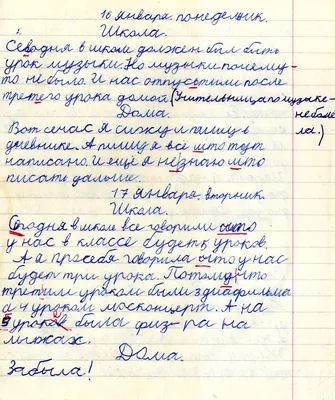 16 января понедельник.
Школа.
Севодня в школе должен был быть
урок музыки. Но музыки почему-
то не было. И нас отпустили после
третего урока домой (Учительница по музыке-
Дома. не была
ла.)
Вот сечас я сижу и пишу в
дневнике. А пишу я всё што тут
написано. И ещё я незнаю што
писать дальше.
17 января, вторник.
Школа.
Сегодня в школе все говорили што
у нас в классе будет 5 уроков.
А я про себя говорила што у нас
будет три урока. Потому что
третим уроком были 3 диафильма
а 4 уроком москонцерт. А на
5 уроке была физ-ра на
лыжах.
Дома.
Забыла!